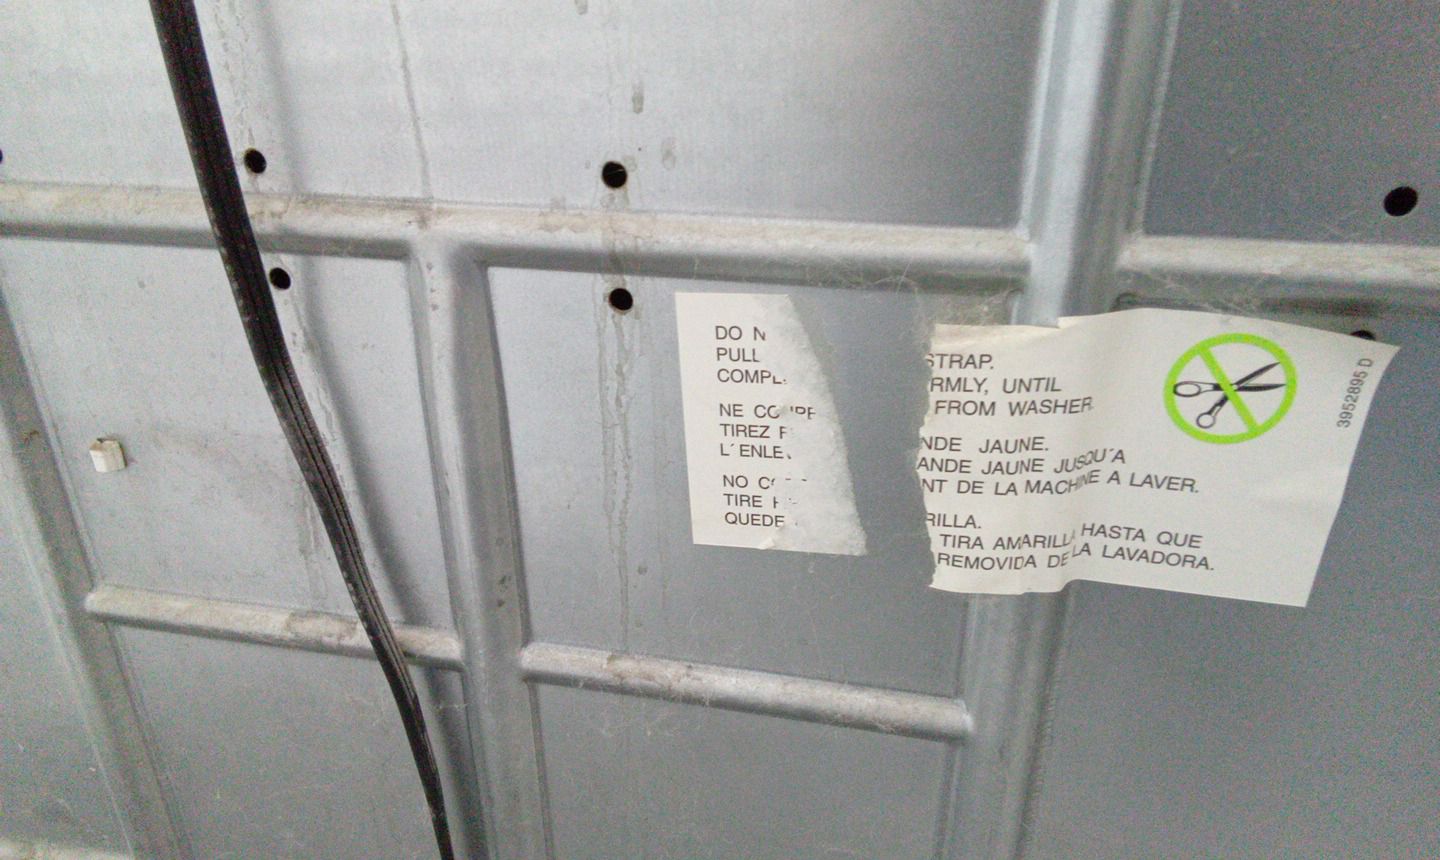 DO N STRAP.
PULL RMLY, UNTIL
COMPL FROM WASHER.
NE COUPE NDE JAUNE.
TIREZ F ANDE JAUNE JUSQU´A
L´ENLE NT DE LA MACHINE A LAVER.
NO CO RILLA.
TIRE TIRA AMARILLA HASTA QUE
QUEDE REMOVIDA DE LA LAVADORA.
3952895 D